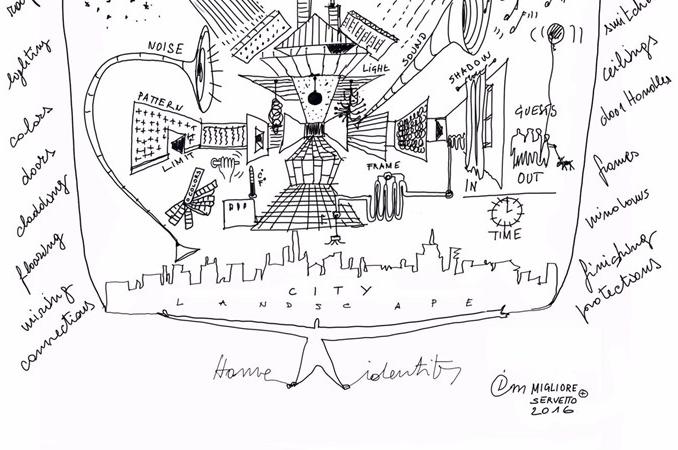 lighting
colors
doors
cladding
flooring
wiring
connections
NOISE
LIGHT
SOUND
SHADOW
PATTERN
LIMIT
COLORS
FRAME
IN
GUESTS
OUT
TIME
ceilings
door Handles
frames
windows
finishing
protections
CITY
LANDSCAPE
Home identity
MIGLIORE
SERVETTO
2016